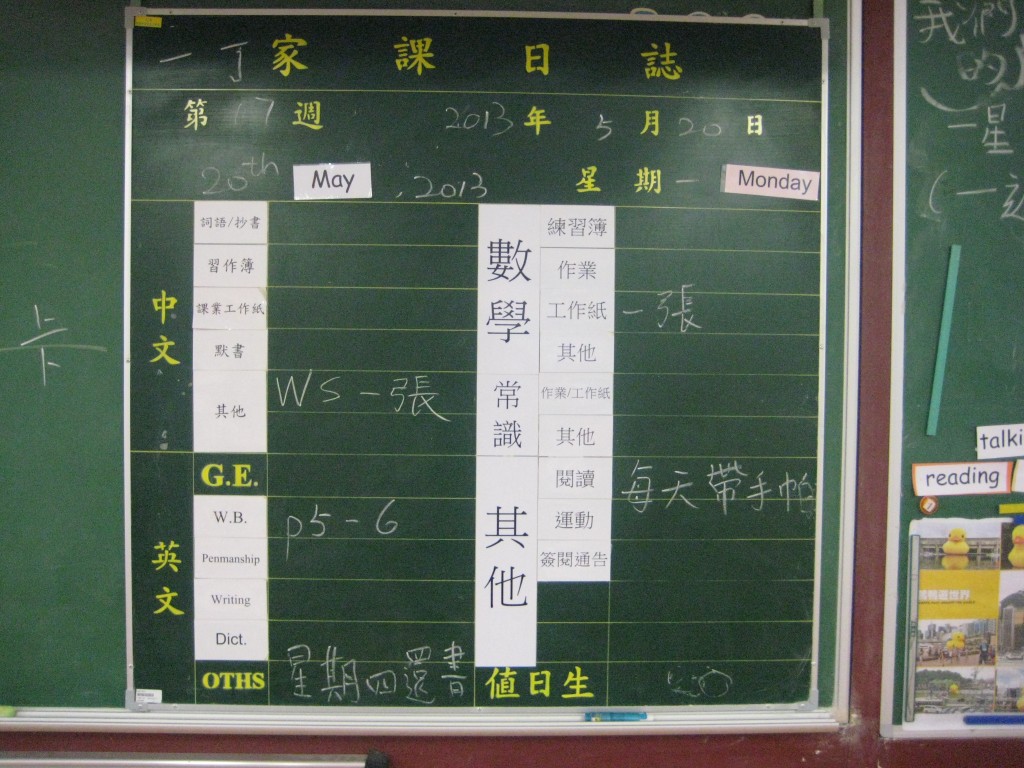 一丁家課日誌
第17週 2013年5月20日
20th May, 2013 星期一 Monday
中文
詞語/抄書
習作簿
課業工作紙
默書
其他 WS一張
英文
G.E.
W.B. p5-6
Penmanship
Writing
Dict.
OTHS 星期四還書
數學
練習簿
作業
工作紙 一張
其他
常識
作業/工作紙
其他
其他
閱讀 每天帶手帕
運動
簽閱通告
值日生
卡
我們
的
一星
(一
talki
reading